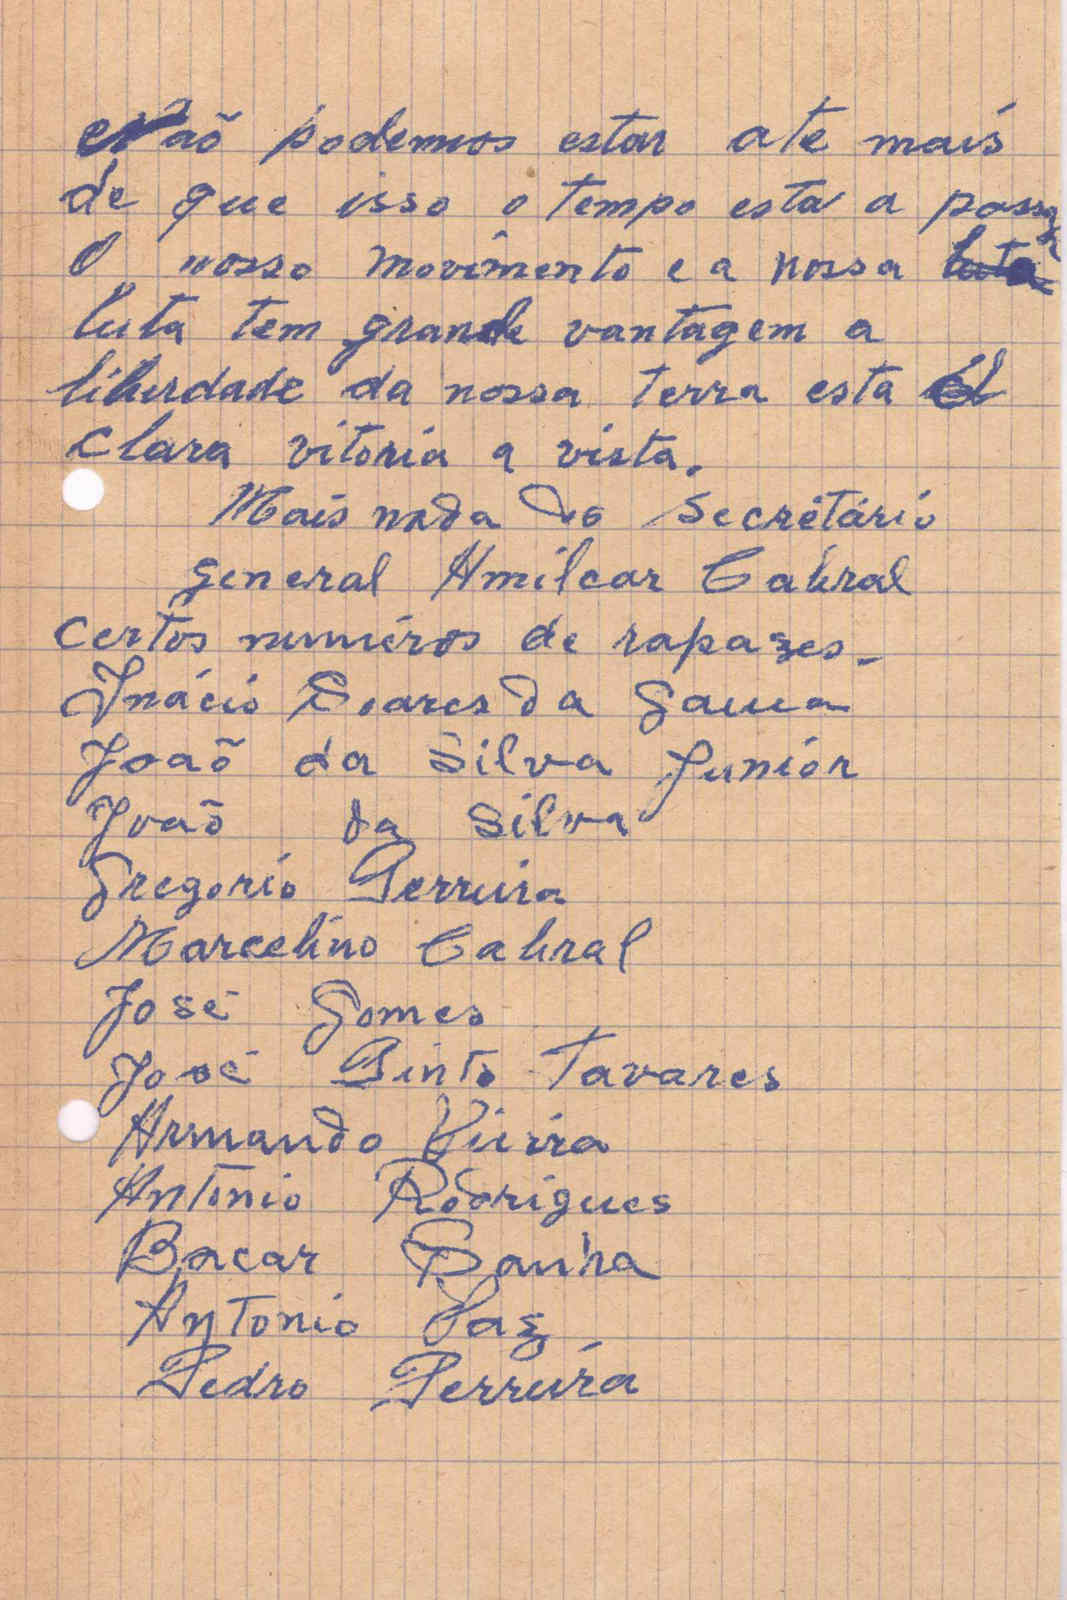 Naõ podemos estar ate mais
de que isso o tempo esta a passar
O nosso movimento e a nossa luta
luta tem grande vantagem a
liberdade da nossa terra esta
clara vitoria a vista.
Mais nada do Secretário
general Amilcar Cabral
certos numéros de rapazes.
Inácio Soares da Gama
Joaõ da Silva Juniór
Joaõ da Silva
Gregorio Perreira
Marcelino Cabral
José Gomes
José Pinto Tavares
Armando Vieira
Antonio Rodrigues
Bacar Sanha
Antonio Vaz
Pedro Perreira